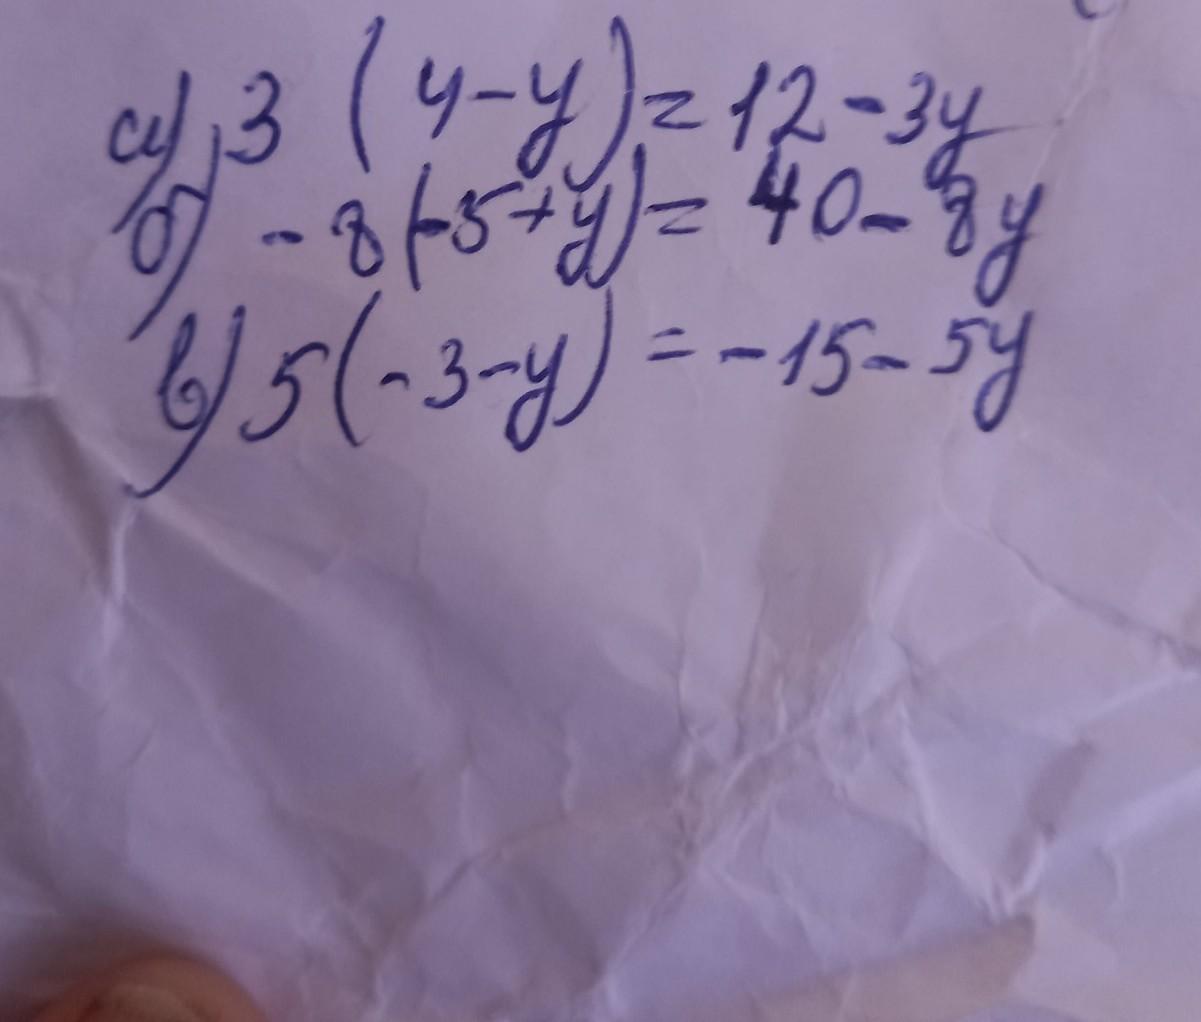 а) 3 (4-y)= 12-3y
б) -8(-5+y)= 40-8y
в) 5(-3-y) =-15-5y